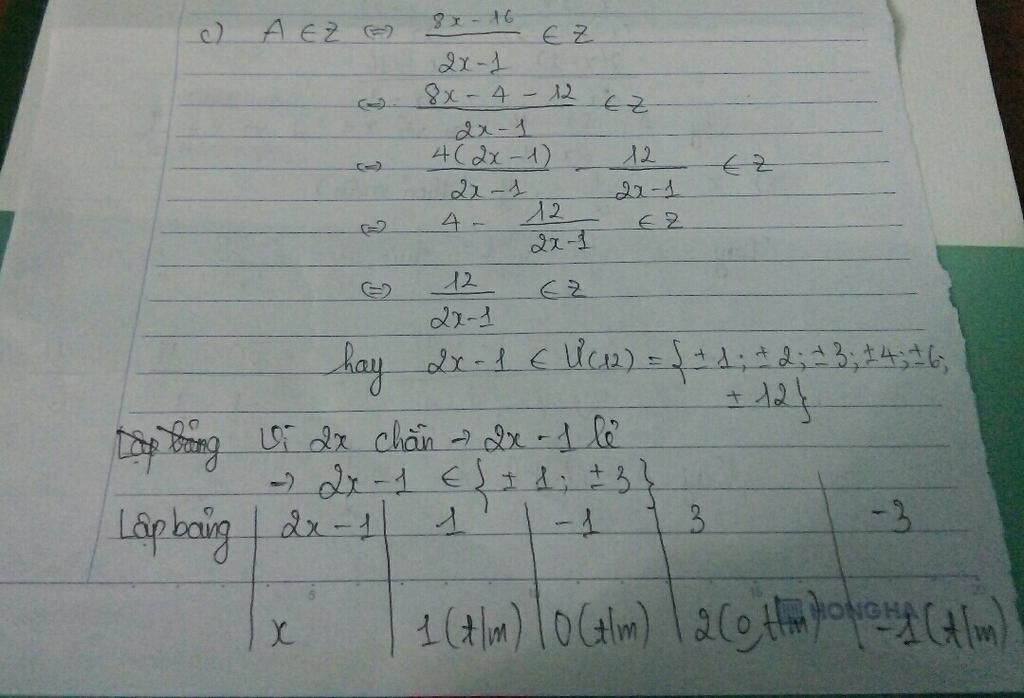 c) A ∈ Z ⇔ (8x - 16)/(2x-1) ∈ Z
⇔ (8x - 4 - 12)/(2x-1) ∈ Z
⇔ 4(2x-1)/(2x-1) - 12/(2x-1) ∈ Z
⇔ 4 - 12/(2x-1) ∈ Z
⇔ 12/(2x-1) ∈ Z
hay 2x-1 ∈ Ư(12) = {±1; ±2; ±3; ±4; ±6;
±12}
Lập bảng Vì 2x chẵn → 2x - 1 lẻ
→ 2x-1 ∈ {±1; ±3}
Lập bảng | 2x-1 | 1 | -1 | 3 | -3
x | 1 (t/m) | 0 (t/m) | 2 ( t/m) | -1 (t/m)
HONGHA